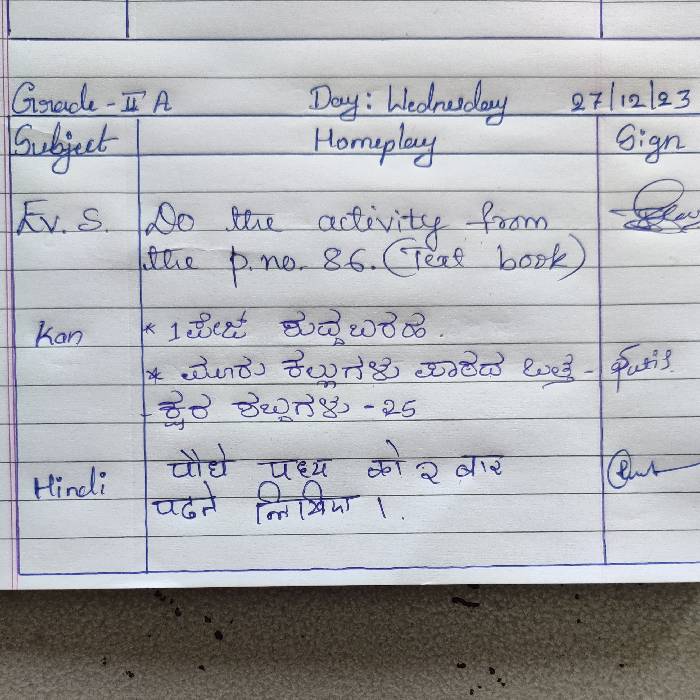 Grade - II A Day: Wednesday 27/12/23
Subject Homeplay Sign
Ev. S. Do the activity from
the p.no. 86. (Text book)
Kan * 1 ಪೇಜ್ ಶುದ್ಧಬರಹ.
* ಮೂರು ಕಲ್ಲುಗಳು ಪಾಠದ ಒತ್ತ -
- ಕ್ಷರ ಶಬ್ದಗಳು - 25
Hindi पौधे पध्य को २ बार
पढते लिखिए।